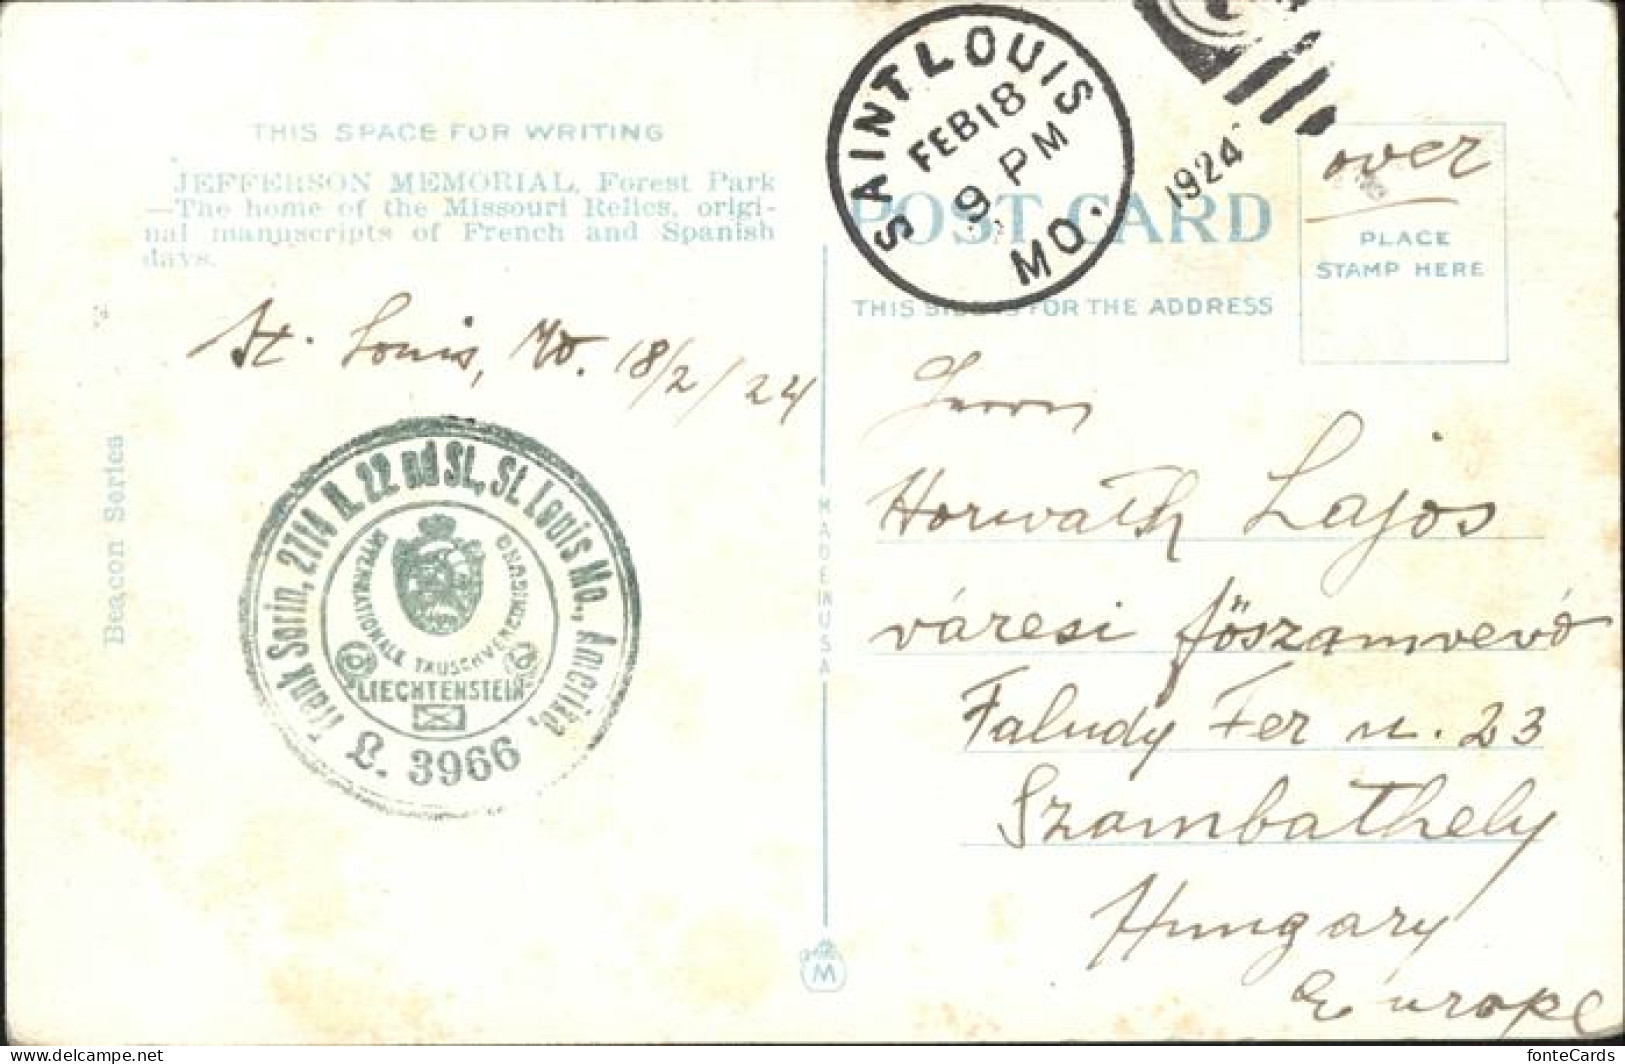 THIS SPACE FOR WRITING
JEFFERSON MEMORIAL, Forest Park
—The home of the Missouri Relics, origi-
nal manuscripts of French and Spanish
days.
St. Louis, Mo. 18/2/24
Beacon Series
Frank Sorin, 2714 N. 22nd St., St. Louis Mo., Amerika,
INTERNATIONALE TAUSCHVEREINIGUNG
LIECHTENSTEIN
L. 3966
MADE IN USA
M
SAINT LOUIS
FEB 18
9 PM
MO.
1924
POST CARD
THIS SIDE IS FOR THE ADDRESS
over
PLACE
STAMP HERE
Herrn
Horwath Lajos
városi főszamvevő
Faludy Fer u. 23
Szombathely
Hungary
Europe
fonteCards